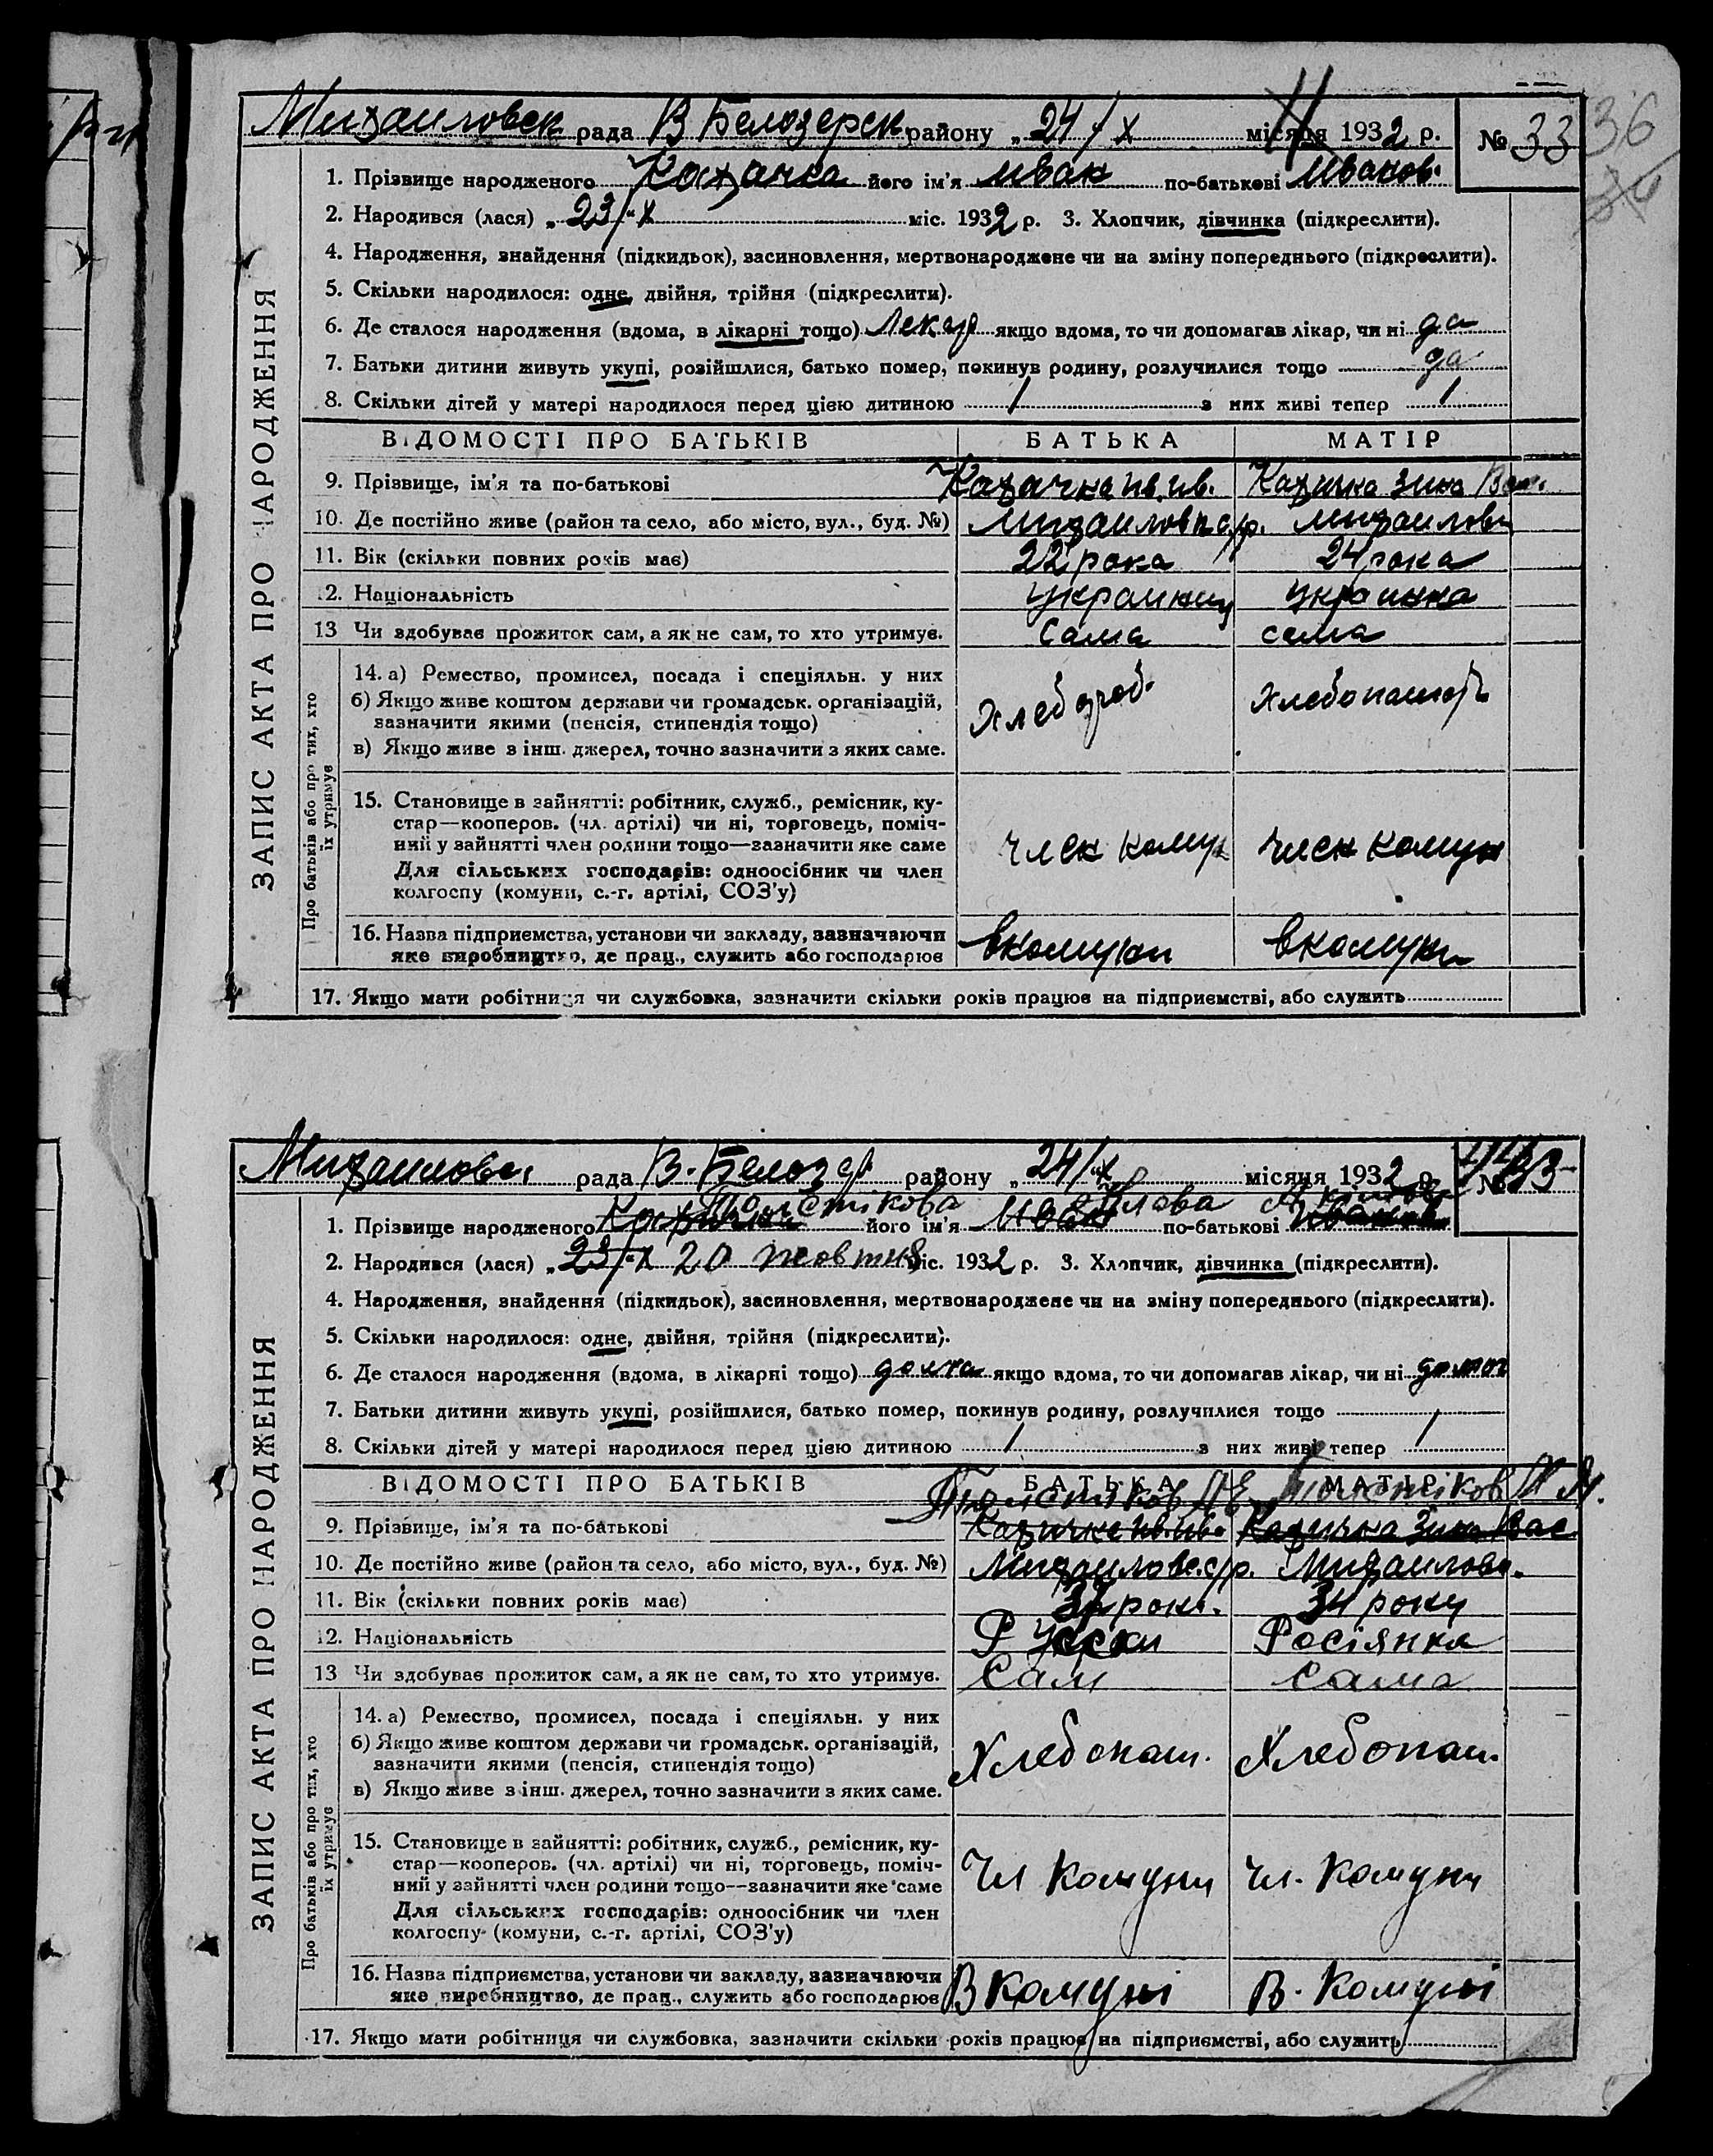 Михаиловск рада В Белозерск району „ 24/X місяця 1932 р. № 33 36
1. Прізвище народженого Казачка його ім'я Иван по-батькові Иванов.
2. Народився (лася) „ 23/"X міс. 1932 р. 3. Хлопчик, дівчинка (підкреслити).
4. Народження, знайдення (підкидьок), засиновлення, мертвонароджене чи на зміну попереднього (підкреслити).
5. Скільки народилося: одне, двійня, трійня (підкреслити).
6. Де сталося народження (вдома, в лікарні тощо) Лекар якщо вдома, то чи допомагав лікар, чи ні да
7. Батьки дитини живуть укупі, розійшлися, батько помер, покинув родину, розлучилися тощо да
8. Скільки дітей у матері народилося перед цією дитиною 1 з них живі тепер 1
ВІДОМОСТІ ПРО БАТЬКІВ БАТЬКА МАТІР
9. Прізвище, ім'я та по-батькові Казачка Ив. Ив. Казачка Зина Вас.
10. Де постійно живе (район та село, або місто, вул., буд. №) Михаиловк с/р. Михаиловк
11. Вік (скільки повних років має) 22 рока 24 рока
12. Національність Украинец Украинка
13 Чи здобуває прожиток сам, а як не сам, то хто утримує. Сама сама
14. а) Ремество, промисел, посада і спеціяльн. у них
б) Якщо живе коштом держави чи громадськ. організацій,
зазначити якими (пенсія, стипендія тощо) Хлебороб. Хлебопашест
в) Якщо живе з інш. джерел, точно зазначити з яких саме.
15. Становище в зайнятті: робітник, служб., ремісник, ку-
стар—кооперов. (чл. артілі) чи ні, торговець, поміч-
ний у зайнятті член родини тощо—зазначити яке саме член комун член комун
Для сільських господарів: одноосібник чи член
колгоспу (комуни, с.-г. артілі, СОЗ'у)
16. Назва підприємства, установи чи закладу, зазначаючи
яке виробництво, де прац., служить або господарює вкомуни вкомуни
17. Якщо мати робітниця чи службовка, зазначити скільки років працює на підприємстві, або служить
ЗАПИС АКТА ПРО НАРОДЖЕННЯ
Про батьків або про тих, хто
їх утримує
Михаиловск рада В. Белозер району „ 24/X місяця 1932 р. №
Толстікова Клава
1. Прізвище народженого Казачка його ім'я Иван по-батькові Иванов
2. Народився (лася) „ 23/"X 20 жовтня міс. 1932 р. 3. Хлопчик, дівчинка (підкреслити).
4. Народження, знайдення (підкидьок), засиновлення, мертвонароджене чи на зміну попереднього (підкреслити).
5. Скільки народилося: одне, двійня, трійня (підкреслити).
6. Де сталося народження (вдома, в лікарні тощо) дома якщо вдома, то чи допомагав лікар, чи ні
7. Батьки дитини живуть укупі, розійшлися, батько помер, покинув родину, розлучилися тощо
8. Скільки дітей у матері народилося перед цією дитиною 1 з них живі тепер 1
ВІДОМОСТІ ПРО БАТЬКІВ БАТЬКА МАТІР
Толстіков Толстіков
9. Прізвище, ім'я та по-батькові Казачка Ив. Ив. Казачка Зина Вас
10. Де постійно живе (район та село, або місто, вул., буд. №) Михаиловк. с/р. Михаиловк.
11. Вік (скільки повних років має) рок. 34 року
12. Національність Росіянка
13 Чи здобуває прожиток сам, а як не сам, то хто утримує. Сам Сама
14. а) Ремество, промисел, посада і спеціяльн. у них
б) Якщо живе коштом держави чи громадськ. організацій,
зазначити якими (пенсія, стипендія тощо) Хлебопаш. Хлебопаш.
в) Якщо живе з інш. джерел, точно зазначити з яких саме.
15. Становище в зайнятті: робітник, служб., ремісник, ку-
стар—кооперов. (чл. артілі) чи ні, торговець, поміч-
ний у зайнятті член родини тощо—зазначити яке саме Чл Комуни чл. Комуни
Для сільських господарів: одноосібник чи член
колгоспу (комуни, с.-г. артілі, СОЗ'у)
16. Назва підприємства, установи чи закладу, зазначаючи
яке виробництво, де прац., служить або господарює В Комуні В. Комуні
17. Якщо мати робітниця чи службовка, зазначити скільки років працює на підприємстві, або служить
ЗАПИС АКТА ПРО НАРОДЖЕННЯ
Про батьків або про тих, хто
їх утримує